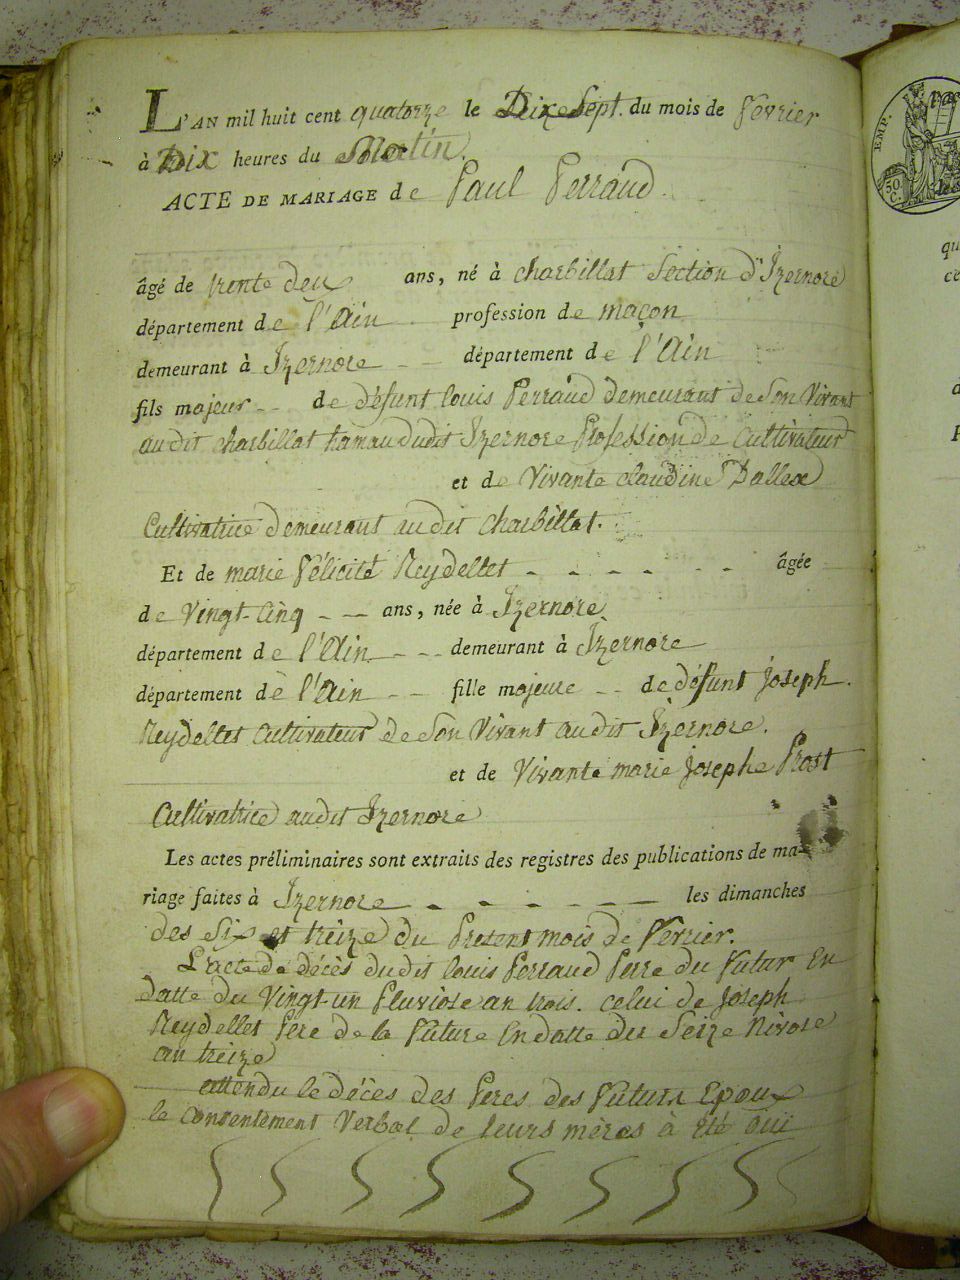 L'AN mil huit cent quatorze le Dix Sept. du mois de Fevrier
à Dix heures du Matin.
ACTE DE MARIAGE de Paul Perraud
âgé de trente deux ans, né à charbillat Section d'Izernore
département de l'Ain profession de maçon
demeurant à Izernore département de l'Ain
fils majeur de défunt Louis Perraud demeurant de Son Vivant
audit charbillat hamau dudit Izernore Profession de Cultivateur
et de Vivante claudine Dallex
Cultivatrice demeurant audit charbillat.
Et de marie Félicité Reydellet âgée
de Vingt-Cinq ans, née à Izernore
département de l'Ain demeurant à Izernore
département de l'Ain fille majeure de défunt Joseph
Reydellet Cultivateur de Son Vivant audit Izernore.
et de Vivante marie Josephe Prost
Cultivatrice audit Izernore
Les actes préliminaires sont extraits des registres des publications de ma-
riage faites à Izernore les dimanches
des Six et treize du Present mois de Fevrier.
L'acte de décès dudit Louis Perraud Perre du Futur En
datte du Vingt-un Pluviose an trois. celui de Joseph
Reydellet Pere de la Future En datte du Seize Nivose
an treize
attendu le déces des Peres des Futurs Epoux
le consentement Verbal de leurs mères à été oui
EMP.
50
C.